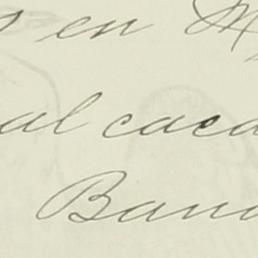 en M
al caca
Ban